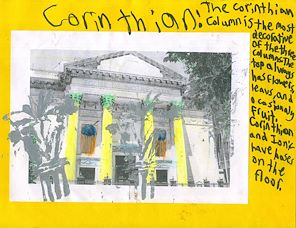 Corinthian:
The corinthian
Column is the most
decorative
of the three
columns. The
top always
has flowers,
leavs, and
ocasionaly
fruit.
Corinthian
and Ionic
have bases
on the
floor.